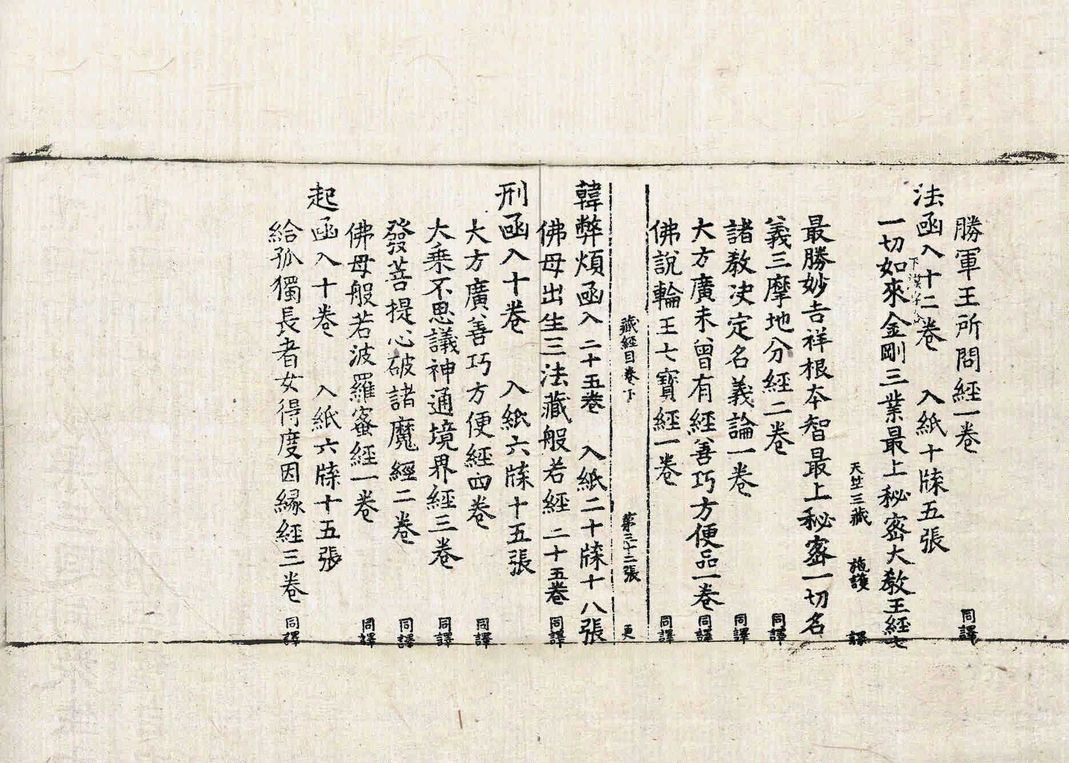 勝軍王所問經一卷 同譯
法函入十二卷 入紙十牒五張
一切如來金剛三業最上秘密大教王經七
天竺三藏 施護 譯
最勝妙吉祥根本智最上秘密一切名
義三摩地分經二卷 同譯
諸教决定名義論一卷 同譯
大方廣未曾有經善巧方便品一卷 同譯
佛說輪王七寶經一卷 同譯
藏經目卷下 第三十二張 更
韓弊煩函入二十五卷 入紙二十牒十八張
佛母出生三法藏般若經二十五卷 同譯
刑函入十卷 入紙六牒十五張
大方廣善巧方便經四卷 同譯
大乘不思議神通境界經三卷 同譯
發菩提心破諸魔經二卷 同譯
佛母般若波羅蜜經一卷 同譯
起函入十卷 入紙六牒十五張
給孤獨長者女得度因縁經三卷 同譯